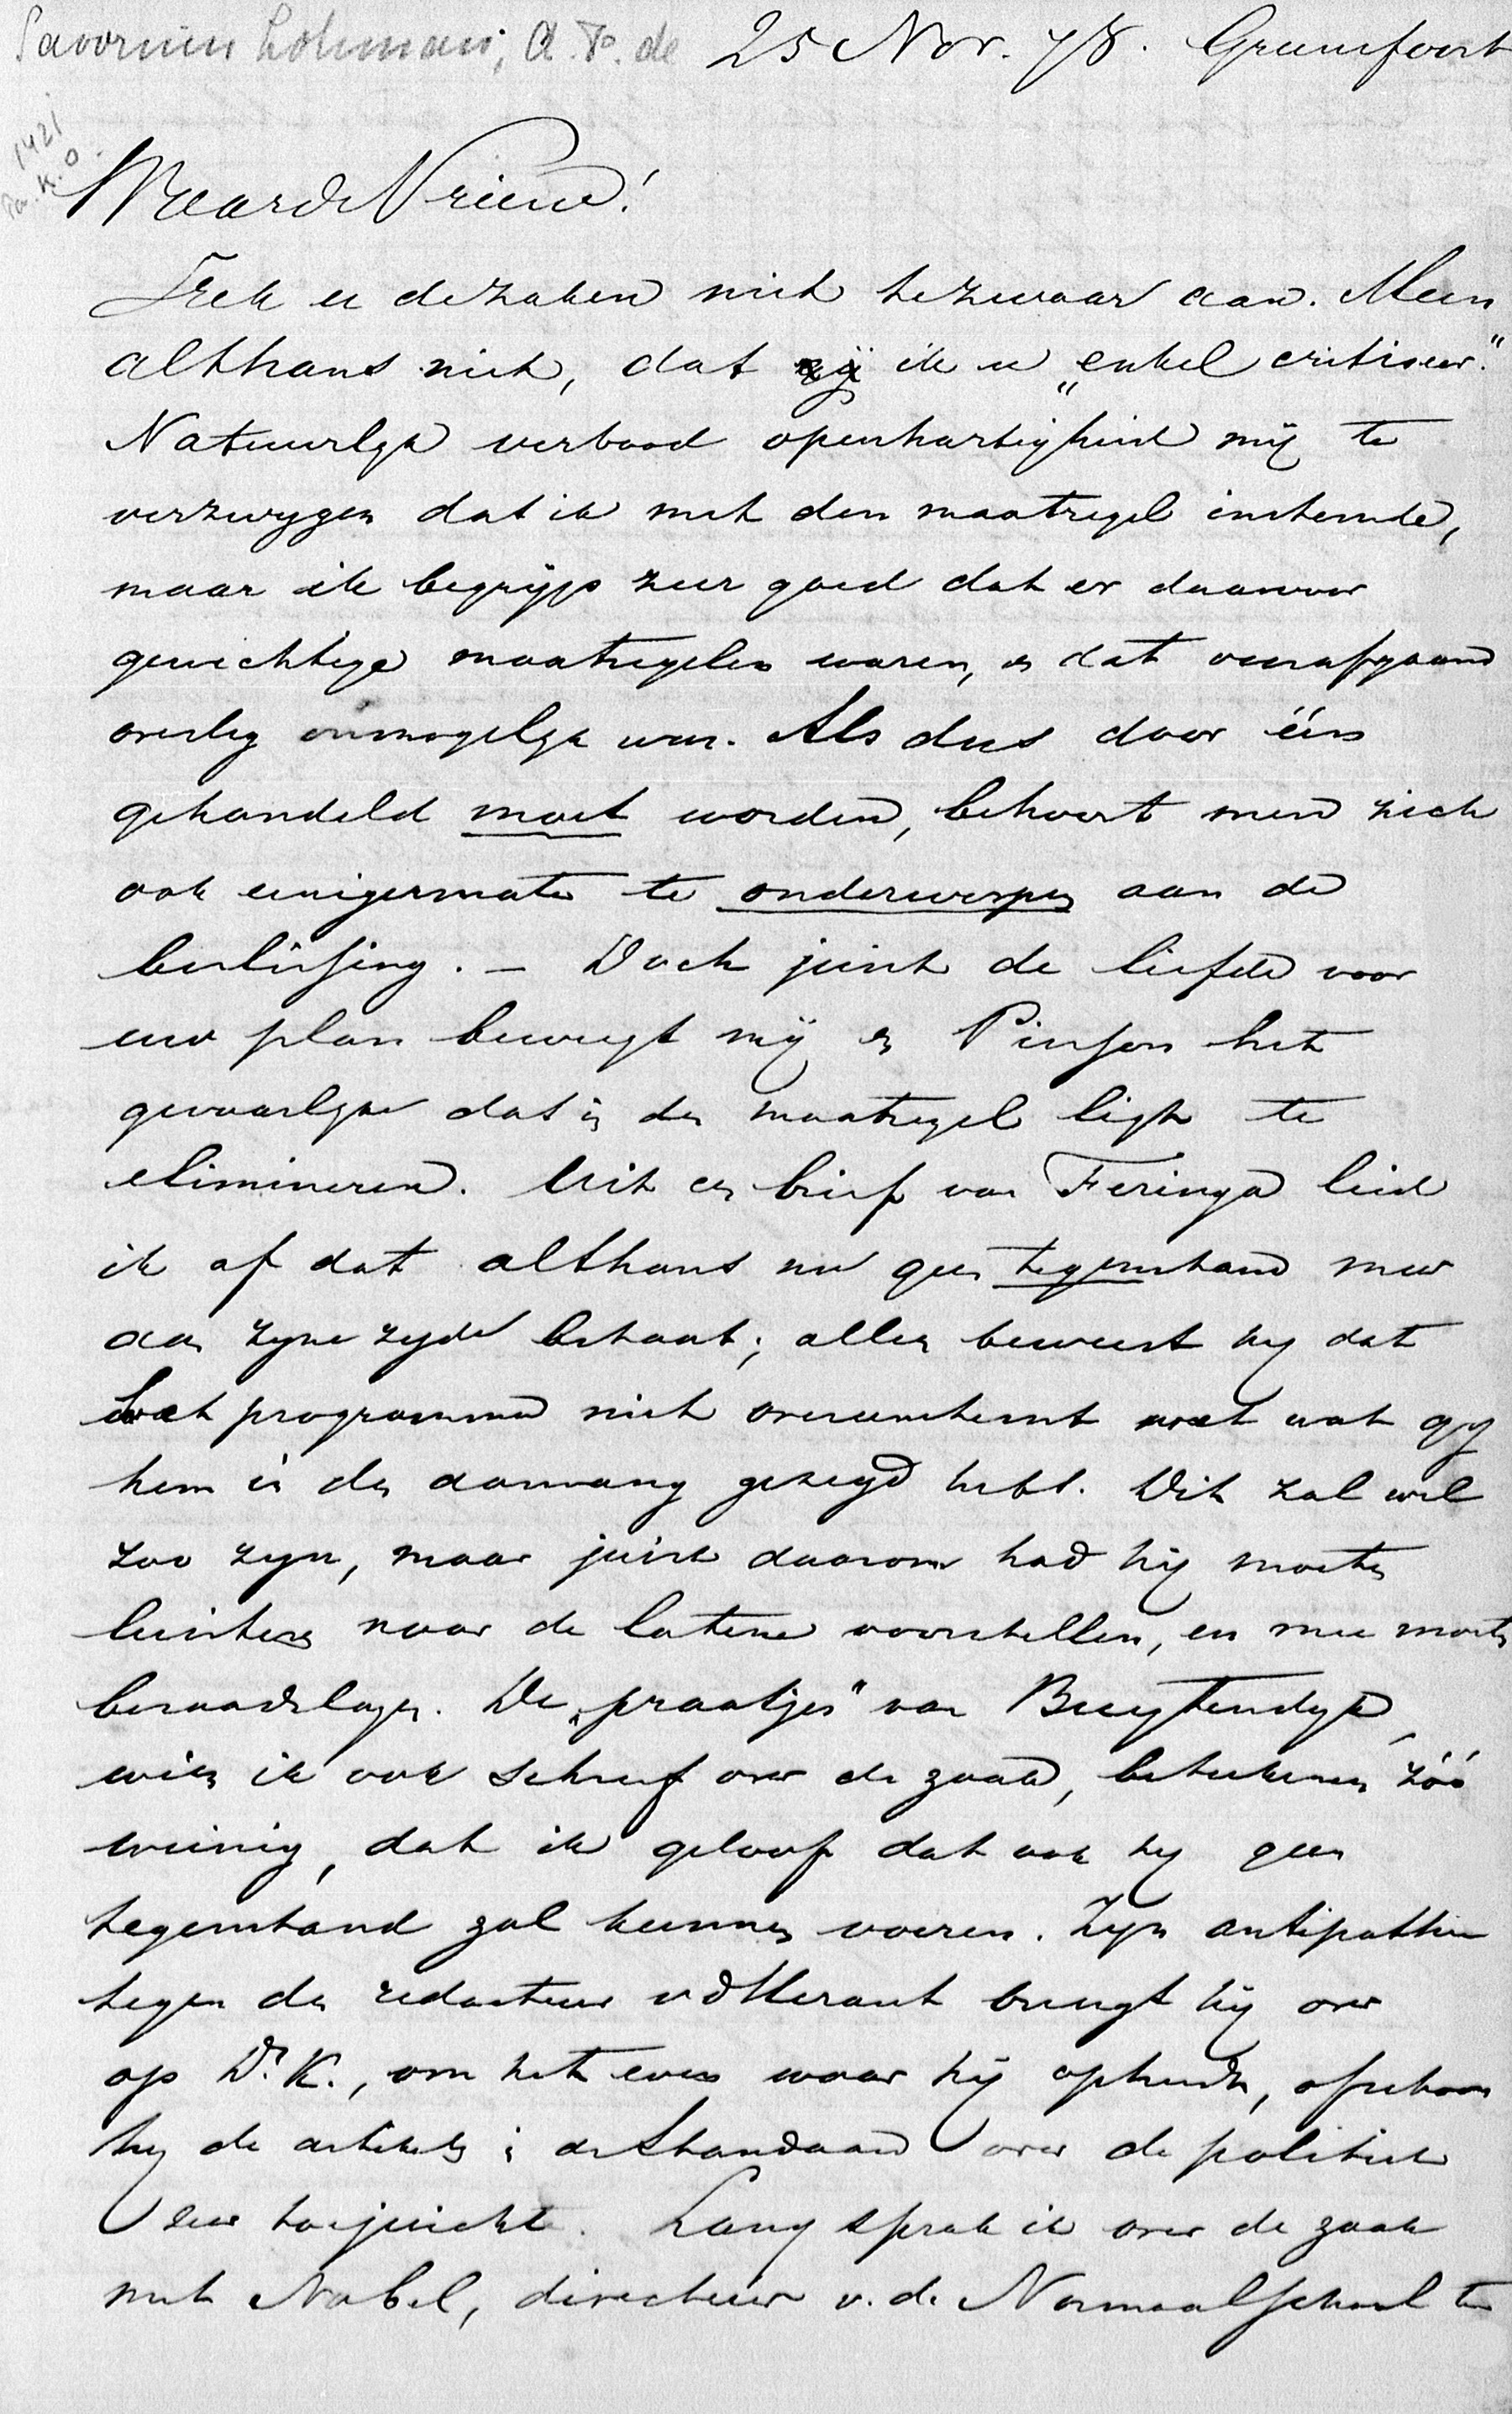 Savornin Lohman, A.F. de 25 Nov. 78. Grunsfoort
1421
Waarde Vriend!
Trek u de zaken niet te zwaar aan. Meen
althans niet, dat ik u „enkel critiseer."
Natuurlyk verbood openhartigheid mij te
verzwygen dat ik met den maatregel instemde,
maar ik begrijp zeer goed dat er daarvoor
gewichtige maatregelen waren, en dat voorafgaand
overleg onmogelyk was. Als dus door één
gehandeld moet worden, behoort men zich
ook eenigermate te onderwerpen aan de
beslissing. – Doch juist de liefde voor
uw plan beweegt mij en Pierson het
gevaarlyke dat in den maatregel ligt te
elimineren. Uit een brief van Feringa leid
ik af dat althans nu geen tegenstand meer
aan zyne zyde bestaat; alleen beweert hy dat
het programma niet overeenstemt met wat gy
hem in den aanvang gezegd hebt. Dit zal wel
zoo zyn, maar juist daarom had hij moeten
luisteren naar de latere voorstellen, en mee moeten
beraadslagen. De „praatjes" van Buytendyk,
wien ik ook schreef over de zaak, beteekenen zóó
weinig, dat ik geloof dat ook hy geen
tegenstand zal kunnen voeren. Zyn antipathie
tegen den redacteur v d Heraut brengt hij over
op Dr. K., om het even waar hij optreedt, ofschoon
hy de artikels in de Standaard over de politiek
zeer toejuichte. Lang sprak ik over de zaak
met Nobel, directeur v. de Normaalschool te